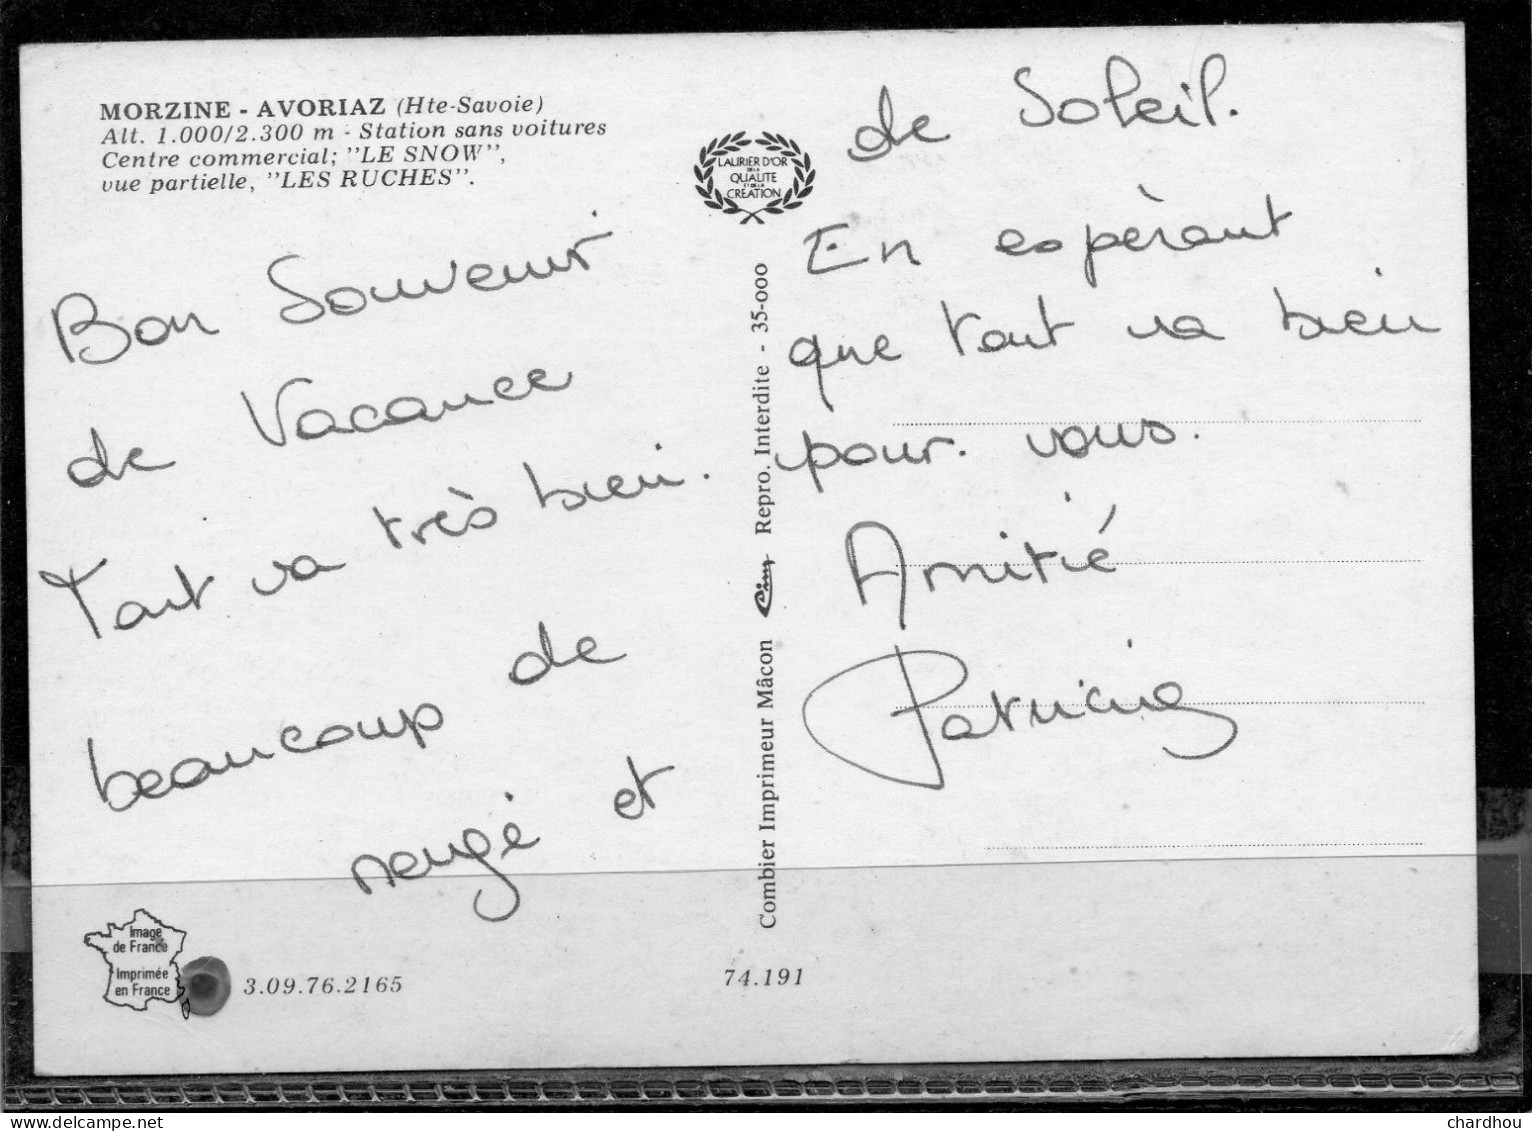 MORZINE - AVORIAZ (Hte-Savoie)
Alt. 1.000/2.300 m - Station sans voitures
Centre commercial; "LE SNOW",
vue partielle, "LES RUCHES".
Bon Souvenir
de Vacance
Tout va très bien.
beaucoup de
neige et
LAURIER D'OR
DE LA
QUALITE
ET DE LA
CREATION
Combier Imprimeur Mâcon Cim Repro. Interdite - 35-000
de Soleil.
En espèrant
que tout va bien
pour. vous.
Amitié
Patricia
Image
de France
Imprimée
en France
3.09.76.2165
74.191
delcampe.net
chardhou